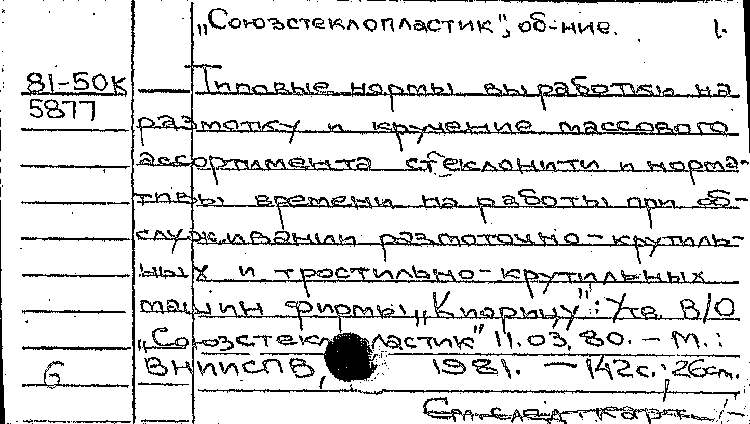 „Союзстеклопластик", об-ние. 1.
81-50К Типовые нормы выработки на
5877
размотку и кручение массового
ассортимента стеклонити и норма-
тивы времени на работы при об-
служивании размоточно-крутиль-
ных и тростильно-крутильных
машин фирмы „Киорицу": Утв. В/О
„Союзстеклопластик" 11.03.80. – М.:
6 ВНИИСПВ, 1981. – 142с.; 26см.
См. след. карт.